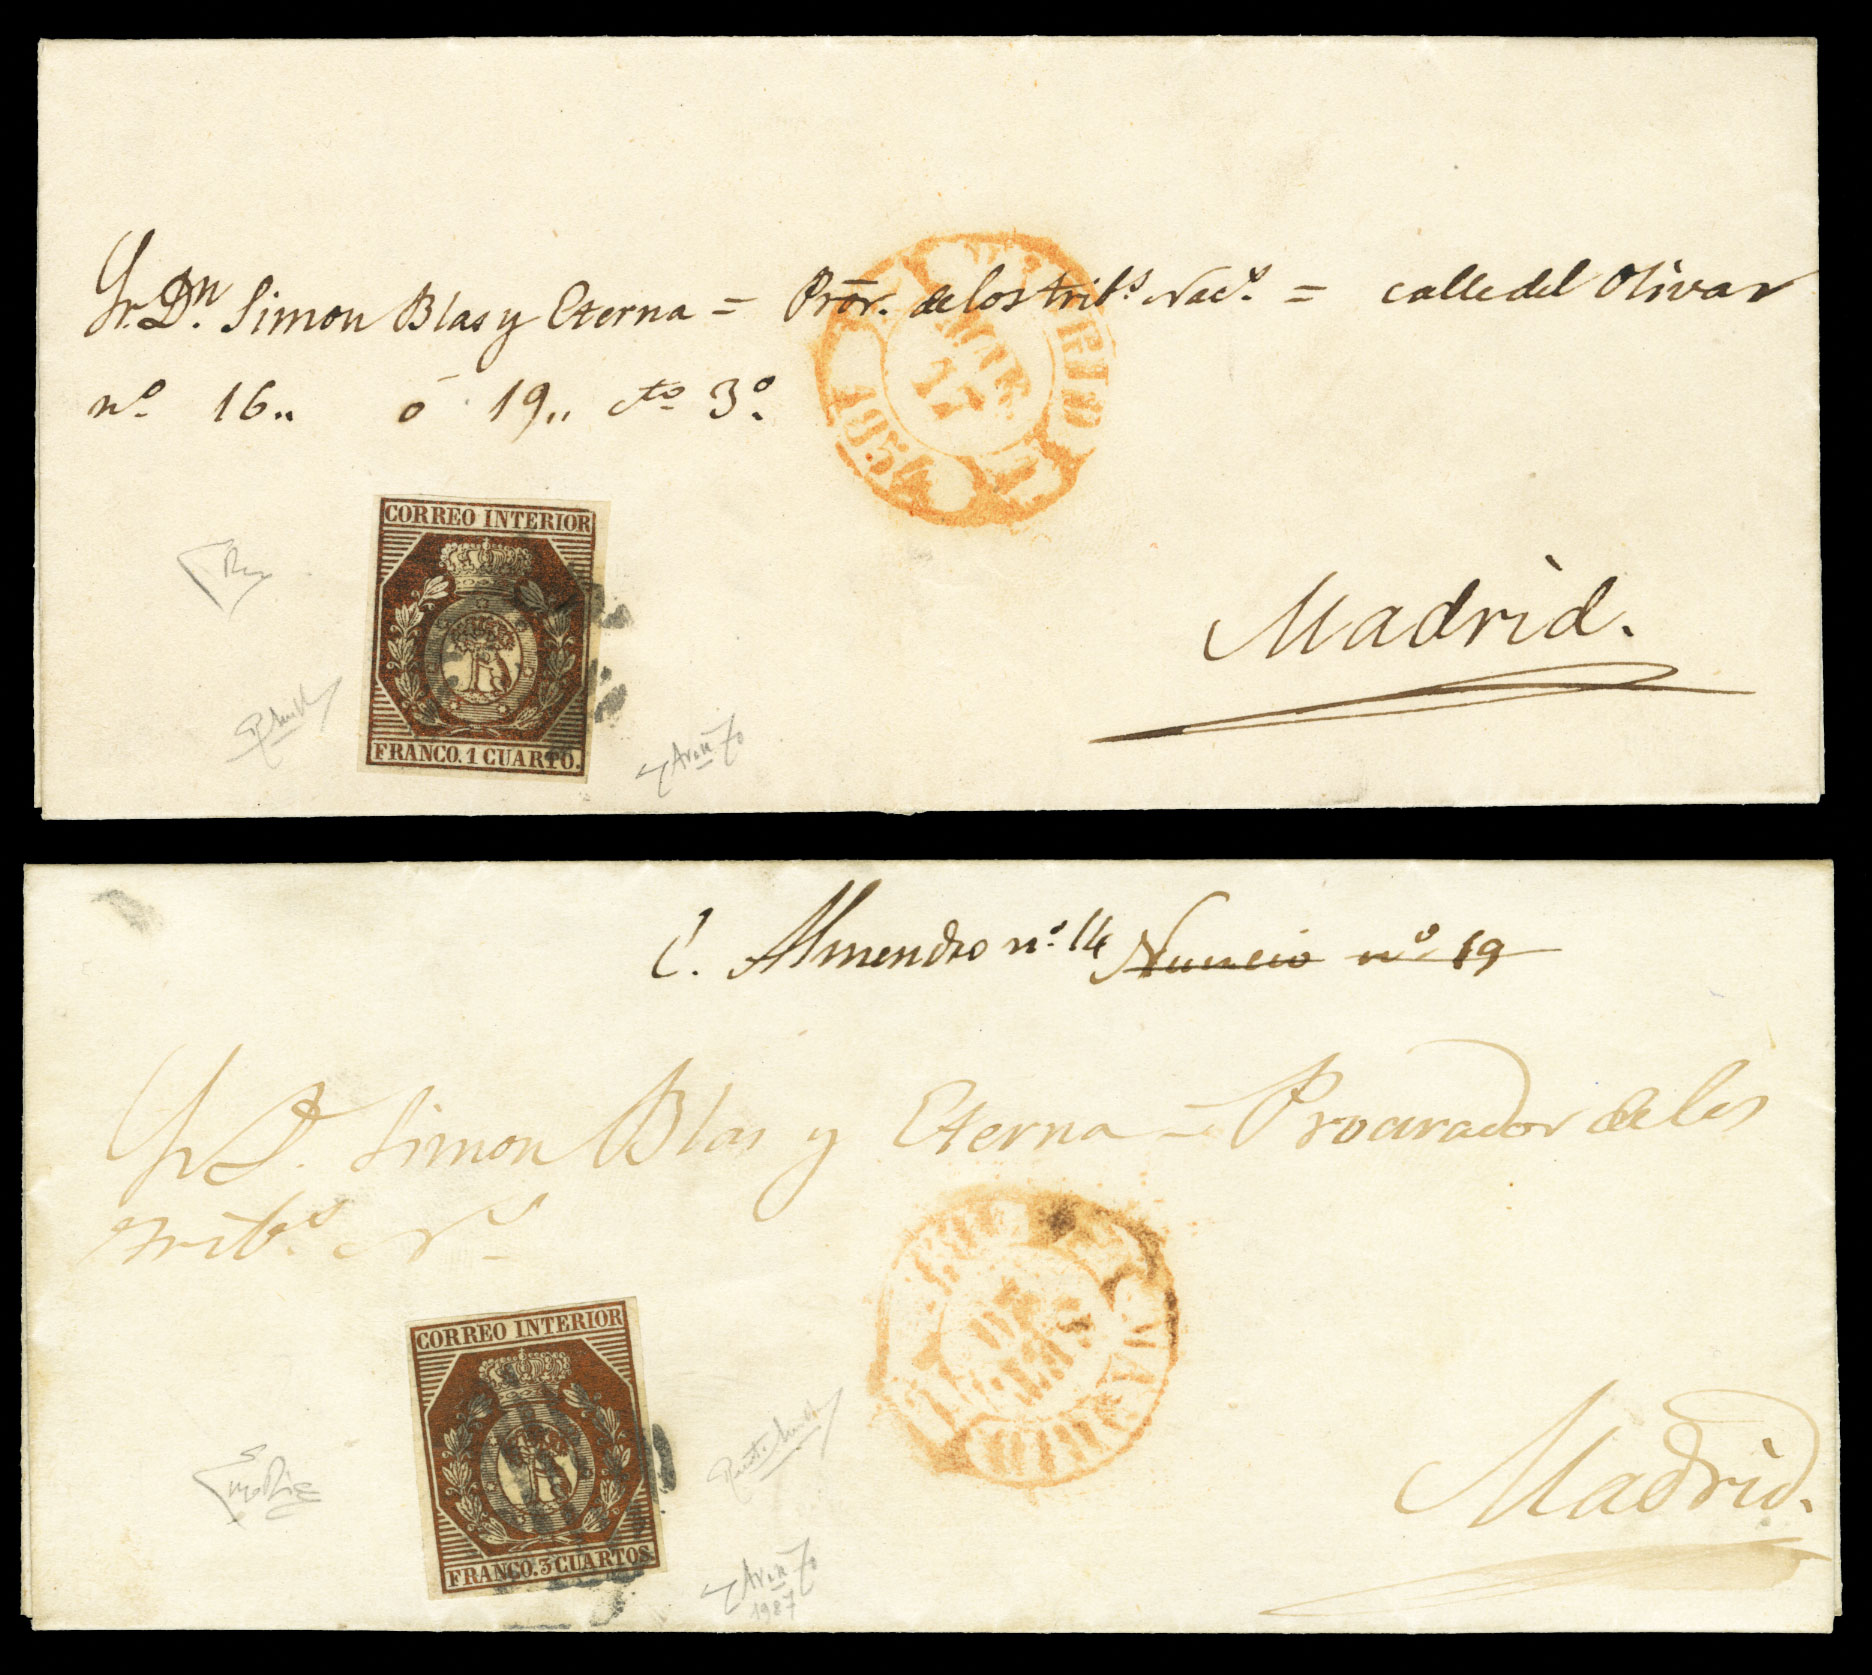 Sr. Dn. Simon Blas y Eterna = Prōr. de los tribs. Nacs. = calle del Olivar
nº 16,, ó 19,, cto 3º.
MAR.
17
1854
CORREO INTERIOR
FRANCO. 1 CUARTO.
Arānzo
Madrid.
C. Almendro nº 14 Nuncio nº 19
Sr D. Simon Blas y Eterna = Procurador de los
Tribs. Ns
CORREO INTERIOR
FRANCO. 3 CUARTOS.
1987
Madrid.